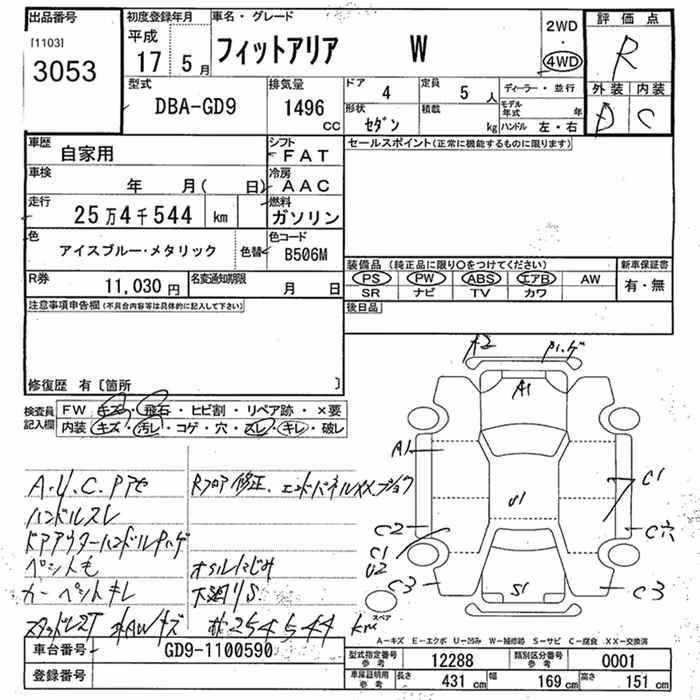 出品番号 初度登録年月 車名・グレード 2WD 評価点
[1103] 平成 フィットアリア W ・ R
3053 17 5月 4WD 外装 内装
型式 排気量 ドア 4 定員 5人 ディーラー・並行 D C
DBA-GD9 1496 CC 形状 セダン 積載 kg モデル年式 年
ハンドル 左・右
車歴 自家用 シフト FAT セールスポイント(正常に機能するものに限ります)
車検 年 月( 日) 冷房 AAC
走行 25万4千544 km 燃料 ガソリン
色 アイスブルー・メタリック 色替 色コード B506M
R券 11,030円 名変通知期限 月 日
装備品(純正品に限り○をつけてください) 新車保証書
PS PW ABS エアB AW 有・無
SR ナビ TV カワ
注意事項申告欄(不具合内容等は具体的に記入して下さい) 後日品
修復歴 有〔箇所 〕
検査員記入欄 FW キズ・飛石・ヒビ割・リペア跡・×要
内装 キズ・汚レ・コゲ・穴・スレ・キレ・破レ
A2
A1
A1 C1
U1
C2 C穴
C1
U2
C3 S1 C3
Rフロア修正、エンドパネルXX
ハンドルスレ
ドアアウターハンドル
オイルにじみ
カーペットキレ 下廻りS
スタッドレス 254544 km
スペア
A-キズ E-エクボ U-凹み W-補修跡 S-サビ C-腐食 XX-交換済
車台番号 GD9-1100590 型式指定番号 参考 12288 類別区分番号 参考 0001
登録番号 車庫証明用 参考 長さ 431 cm 幅 169 cm 高さ 151 cm